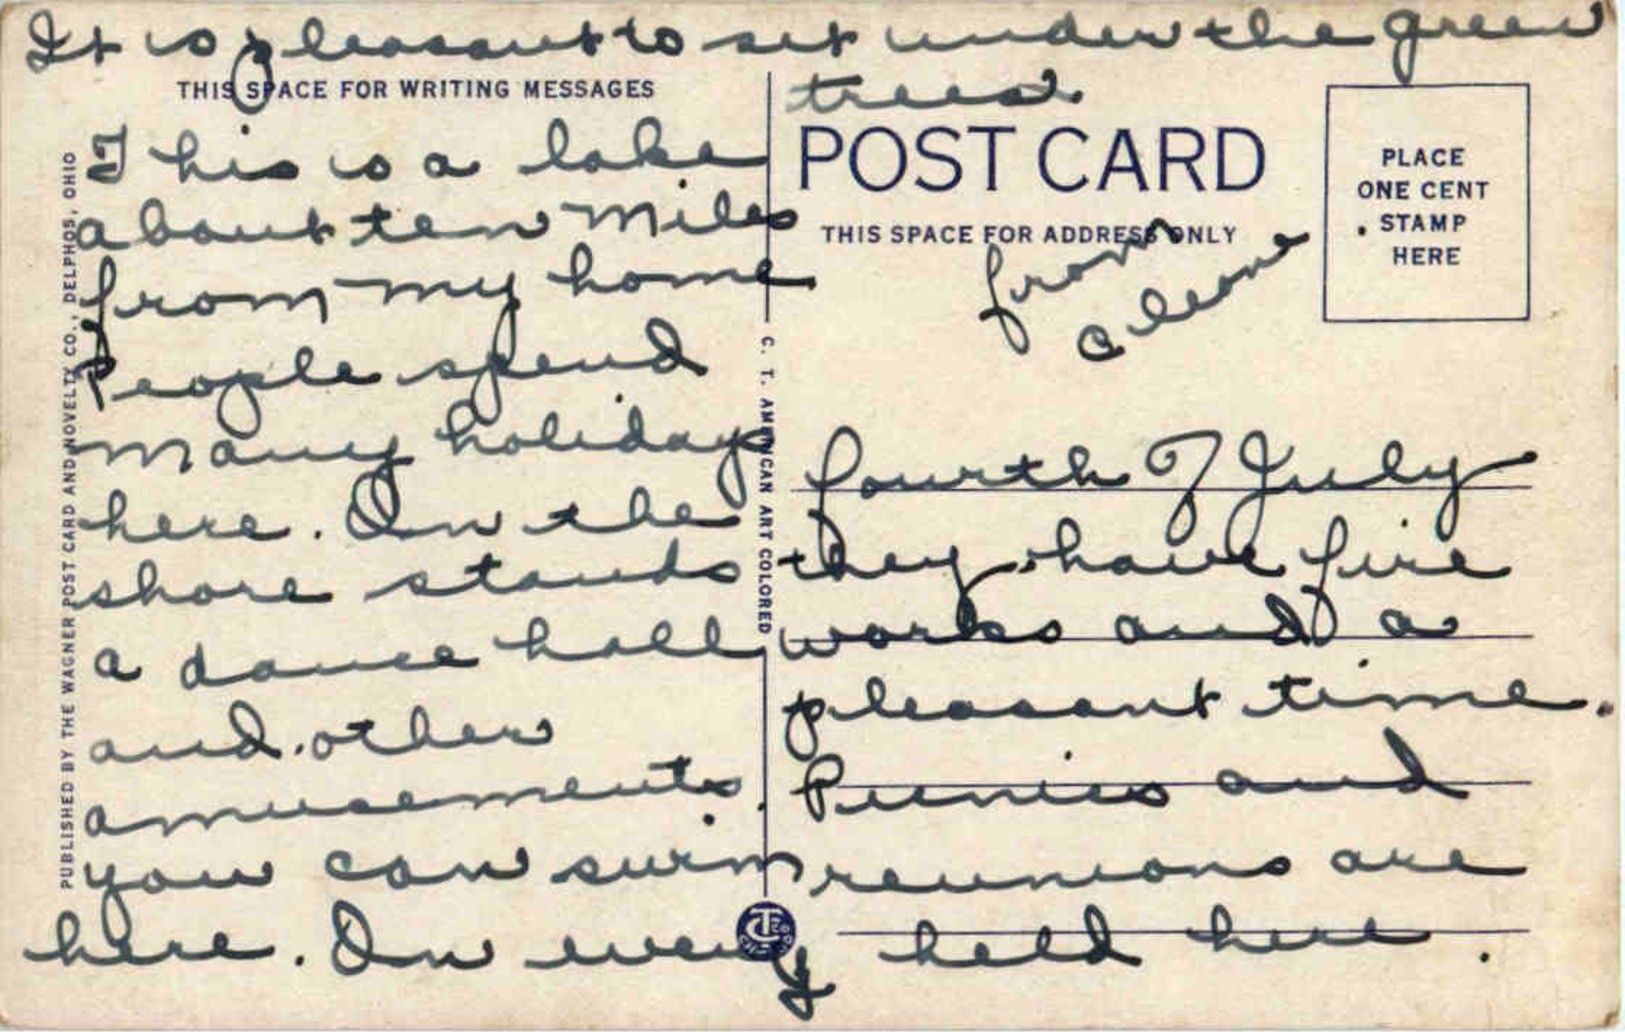 It is pleasant to sit under the green
trees.
THIS SPACE FOR WRITING MESSAGES
This is a lake
about ten miles
from my home
People spend
many holidays
here. On the
shore stands
a dance hall
and other
amusements.
you can swim
here. On every
POST CARD
THIS SPACE FOR ADDRESS ONLY
from
Cleone
PLACE
ONE CENT
STAMP
HERE
fourth of July
they have fire
works and a
pleasant time.
Picnics and
reunions are
held here.
PUBLISHED BY THE WAGNER POST CARD AND NOVELTY CO., DELPHOS, OHIO
C. T. AMERICAN ART COLORED